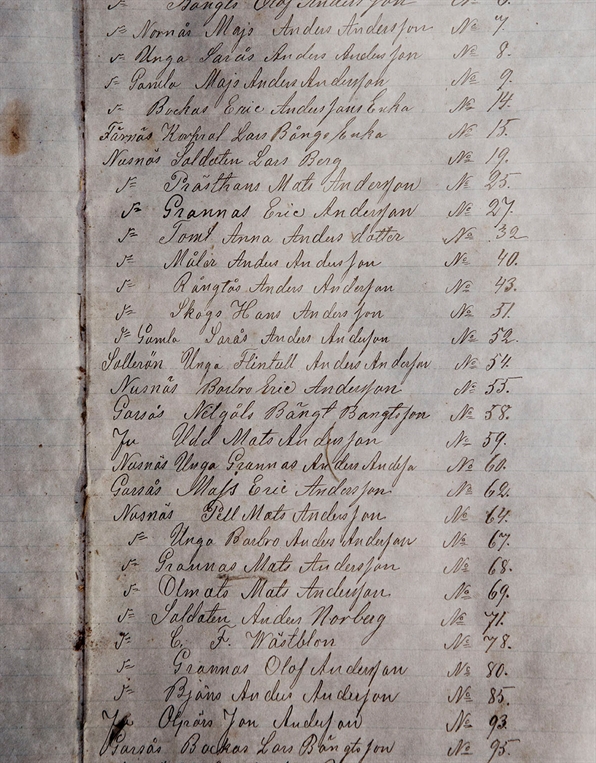 s= Bångts Olof Andersson No 6.
s= Nornäs Majs Anders Andersson No 7.
s= Unga Sarås Anders Andersson No 8.
s= Gamla Majs Anders Andersson No 9.
s= Backas Eric Anderssons Enka No 14.
Färnäs Korpral Lars Bångs Enka No 15.
Nusnäs Soldaten Lars Berg No 19.
s= Prästhans Mats Andersson No 25.
s= Grannas Eric Andersson No 27.
s= Tomt Anna Anders dotter No 32
s= Målar Anders Andersson No 40.
s= Rångtås Anders Andersson No 43.
s= Skogs Hans Andersson No 51.
s= Gamla Sarås Anders Andersson No 52.
Sollerön Unga Flintull Anders Andersson No 54.
Nusnäs Barbro Eric Andersson No 55.
Garsås Nelgåls Bångt Bangtsson No 58.
Ju Udd Mats Andersson No 59.
Nusnäs Unga Grannas Anders Anderss No 60.
Garsås Mass Eric Andersson No 62.
Nusnäs Pell Mats Andersson No 64.
s= Unga Barbro Anders Andersson No 67.
s= Grannas Mats Andersson No 68.
s= Olmats Mats Andersson No 69.
s= Soldaten Anders Norberg No 71.
s= C. F. Wästblon No 78.
s= Grannas Olof Andersson No 80.
s= Björs Anders Andersson No 85.
Ju Olpärs Jon Andersson No 93
Garsås Backas Lars Bångtsson No 95.